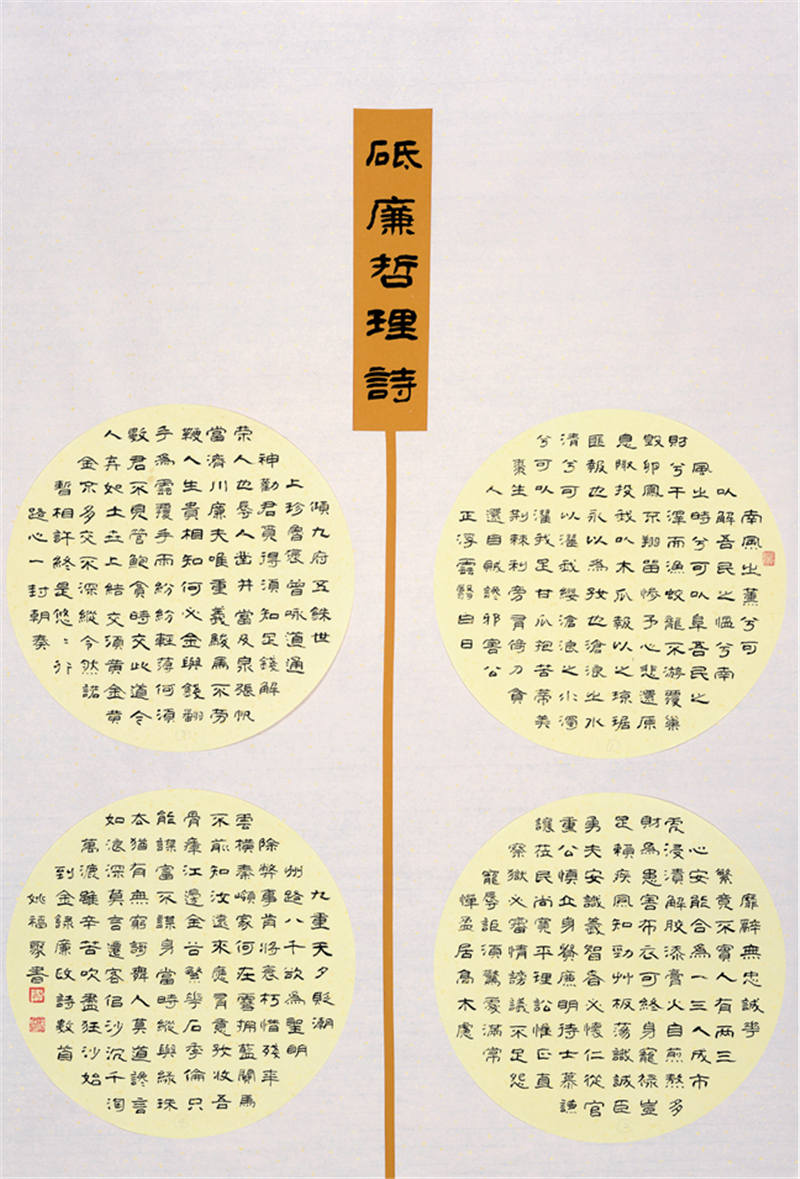 砥廉哲理詩
南風之薰兮可
以解吾民之慍兮南
風之時兮可以阜吾民之
財兮干澤而漁蛟龍不游覆巢
毀卵鳳不翔笛慘予心悲還原
息陬投我以木瓜報以之瓊琚
匪報也永以為好也滄浪之水
清兮可以濯我纓滄浪之水濁
兮可以濯我足甘瓜抱苦蒂美
棗生荊棘利旁有倚刀貪
人還自賊讒邪害公
正浮雲翳白日
靡辭無忠誠華
繁竟不實人有兩三
心安能合為一三人成市
虎浸漬解膠漆膏火自煎熬多
財為患害布衣可終身寵祿豈
足賴疾風知勁艸板蕩識誠臣
勇夫安識義智者必懷仁從官
重公慎立身貴廉明待士慕謙
讓莅民尚寬平理訟惟正直
察獄必審情謗議不足怨
寵辱詎須驚處滿常
憚盈居高本慮
傾九府五銖世
上珍魯褒曾詠道通
神勤君覓得須知足錢解
榮人也辱人凿井當及泉張帆
當濟川廉夫唯重義駿馬不勞
鞭人生貴相知何必金與錢翻
手為雲覆手雨紛紛輕薄何須
數君不見管鮑貧時交此道今
人弃如土世上結交須黃金黃
金不多交不深縱令然諾
暫相許終是悠悠行
路心一封朝奏
九重天夕貶潮
州路八千欲為聖明
除弊事肯將衰朽惜殘年
雲橫秦嶺家何在雪擁藍關馬
不前知汝遠來應有意好收吾
骨瘴江邊金谷繁華石季倫只
能謀富不謀身當時縱與綠珠
去猶有無窮謌舞人莫道讒言
如浪深莫言遷客似沙沉千淘
萬漉雖辛苦吹盡狂沙始
到金錄廉政詩數首
姚福聚書